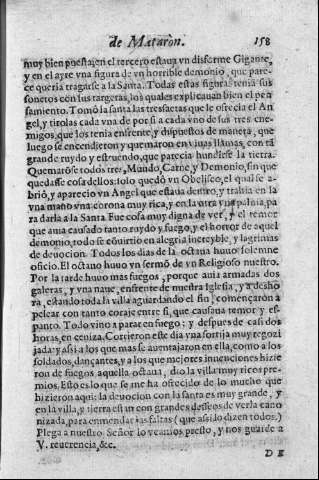 de Mataròn. 158
muy bien puesta; en el tercero estaua vn disforme Gigante,
y en el ayre vna figura de vn horrible demonio, que pare-
ce queria tragarse a la Santa. Todas estas figuras tenia sus
sonetos con sus targetas, los quales explicauan bien el pen
samiento. Tomò la santa las tres saetas que le ofrecia el An
gel, y tirolas cada vna de por si a cada vno de sus tres ene-
migos, que los tenia enfrente, y dispuestos de manera, que
luego se encendieron y quemaron en viuas llamas, con tã
grande ruydo y estruendo, que parecia hundirse la tierra.
Quemarõse todos tres, Mundo, Carne, y Demonio, sin que
quedasse cosa dellos: solo quedò vn Obelisco, el qual se a-
briò, y aparecio vn Angel que estaua dentro, y trahia en la
vna mano vna corona muy rica, y en la otra vna palma, pa
ra darla a la Santa. Fue cosa muy digna de ver, y el temor
que auia causado tanto ruydo y fuego, y el horror de aquel
demonio, todo se cõuirtio en alegria increyble, y lagrimas
de deuocion. Todos los dias de la octaua huuo solenne
oficio. El octauo huuo vn sermõ de vn Religioso nuestro.
Por la tarde huuo mas fuegos, porque auia armadas dos
galeras, y vna naue, enfrente de nuestra Iglesia, y a desho
ra, estando toda la villa aguardando el fin, començaron a
pelear con tanto coraje entre si, que causaua temor y es-
panto. Todo vino a parar en fuego; y despues de casi dos
horas, en ceniza. Corrieron este dia vna sortija muy regozi
jada: y assi a los que mas se auentajaron en ella, como a los
soldados, dançantes, y a los que mejores inuenciones hizie
ron de fuegos aquella octaua, dio la villa muy ricos pre-
mios. Esto es lo que se me ha ofrecido de lo mucho que
hizieron aqui: la deuocion con la santa es muy grande, y
en la villa, y tierra estan con grandes desseos de verla cano
nizada, para enmendar las faltas (que assi lo dizen todos.)
Plega a nuestro Señor lo veamos presto, y nos guarde a
V. reuerencia, &c.
D E